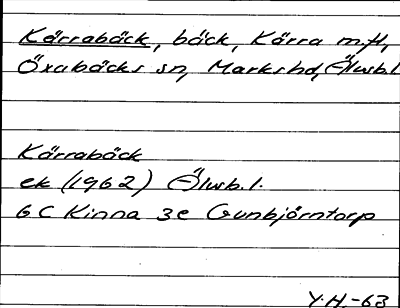 Kärrabäck, bäck, Kärra m.fl,
Öxabäcks sn, Markshd, Älvsb.l
Kärrabäck
ek (1962) Älvsb.l.
6 C Kinna 3e Gunbjörntorp
Y.H.-63